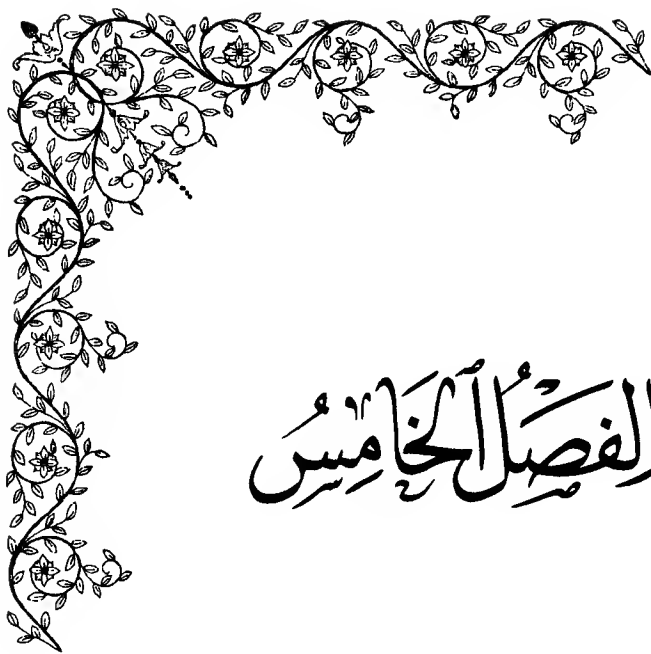 الفَصْلُ ٱلْخَامِسُ